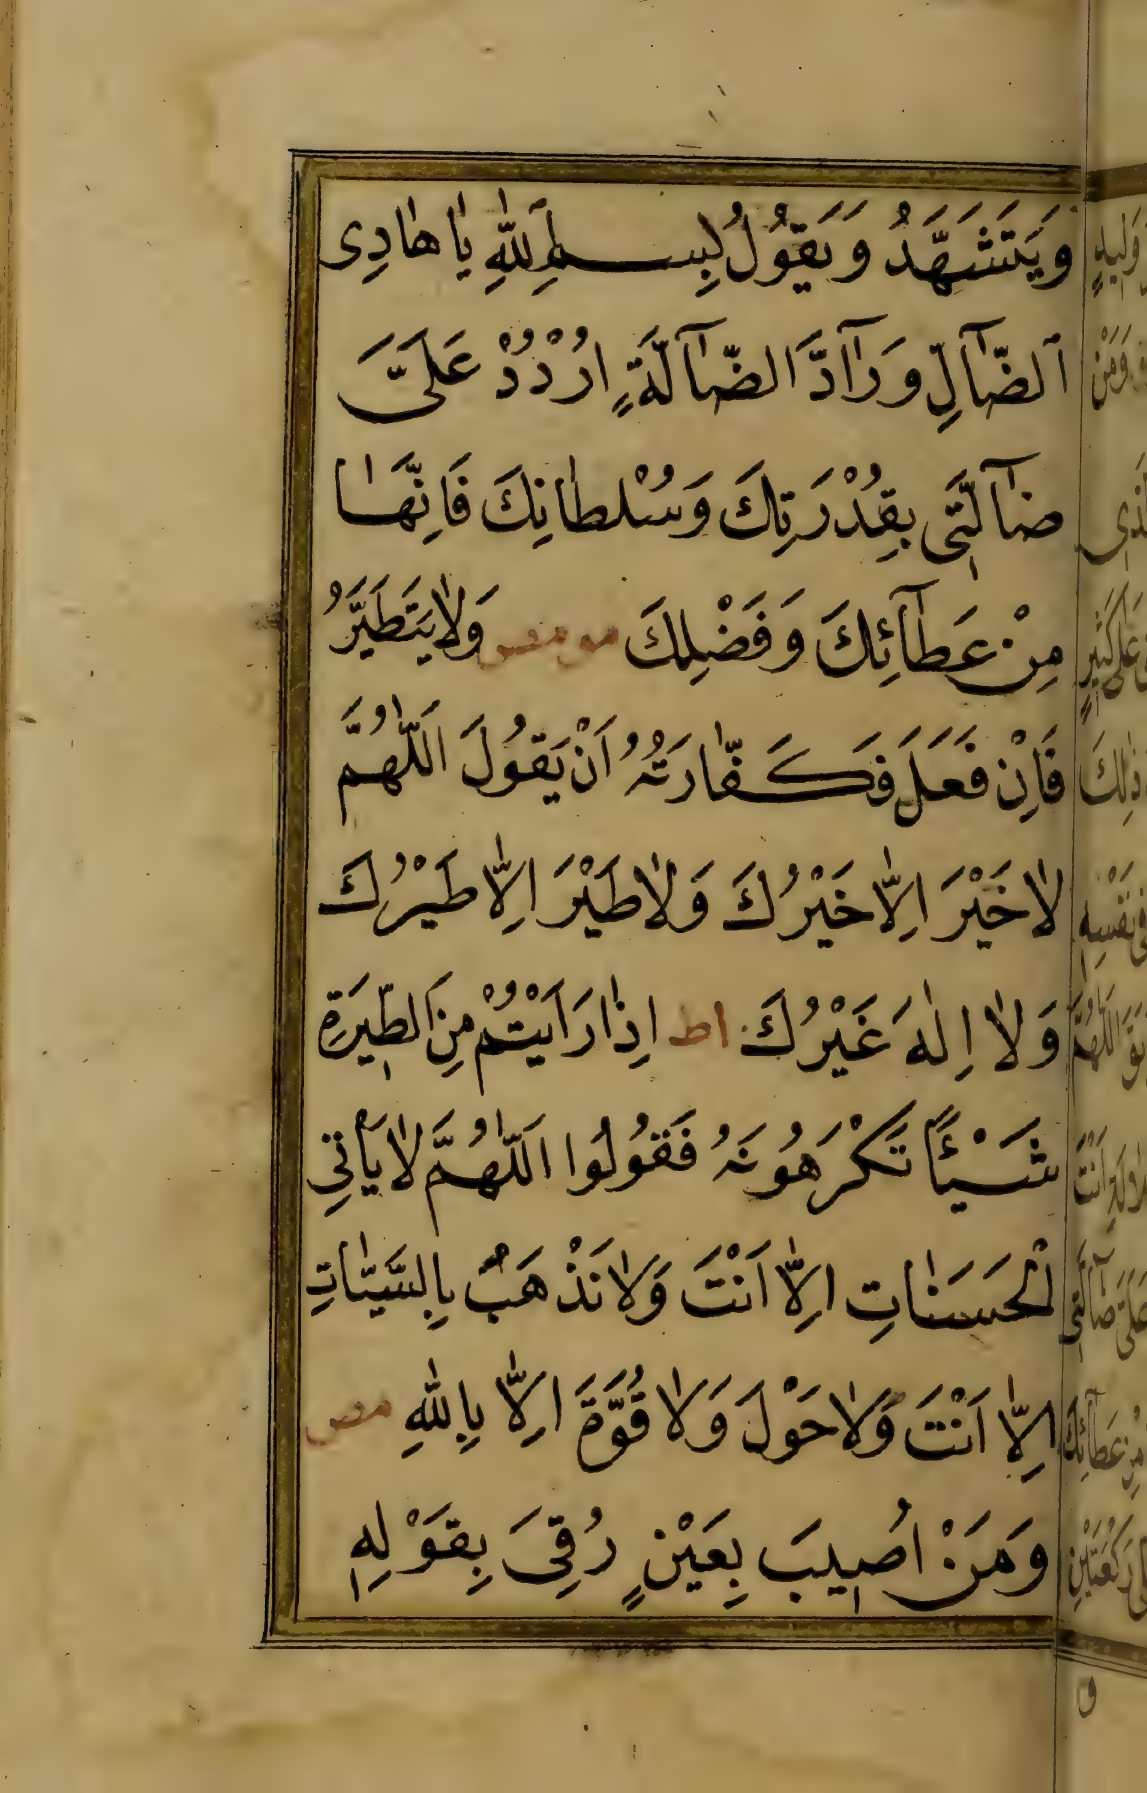 وَيَتَشَهَّدُ وَيَقُولُ بِسْمِ اللّٰهِ يَا هَادِيَ
الضَّآلِّ وَرَآدَّ الضَّآلَّةِ اُرْدُدْ عَلَيَّ
ضَآلَّتِي بِقُدْرَتِكَ وَسُلْطَانِكَ فَاِنَّهَا
مِنْ عَطَآئِكَ وَفَضْلِكَ مو مص وَلَا يَتَطَيَّرُ
فَاِنْ فَعَلَ فَكَفَّارَتُهُ اَنْ يَقُولَ اَللّٰهُمَّ
لَا خَيْرَ اِلَّا خَيْرُكَ وَلَا طَيْرَ اِلَّا طَيْرُكَ
وَلَا اِلٰهَ غَيْرُكَ ا ط اِذَا رَاَيْتُمْ مِنَ الطِّيَرَةِ
شَيْئًا تَكْرَهُونَهُ فَقُولُوا اَللّٰهُمَّ لَا يَأْتِي
الْحَسَنَاتِ اِلَّا اَنْتَ وَلَا نَذْهَبُ بِالسَّيِّاٰتِ
اِلَّا اَنْتَ وَلَا حَوْلَ وَلَا قُوَّةَ اِلَّا بِاللّٰهِ مص
وَمَنْ اُصِيبَ بِعَيْنٍ رُقِيَ بِقَوْلِهِ